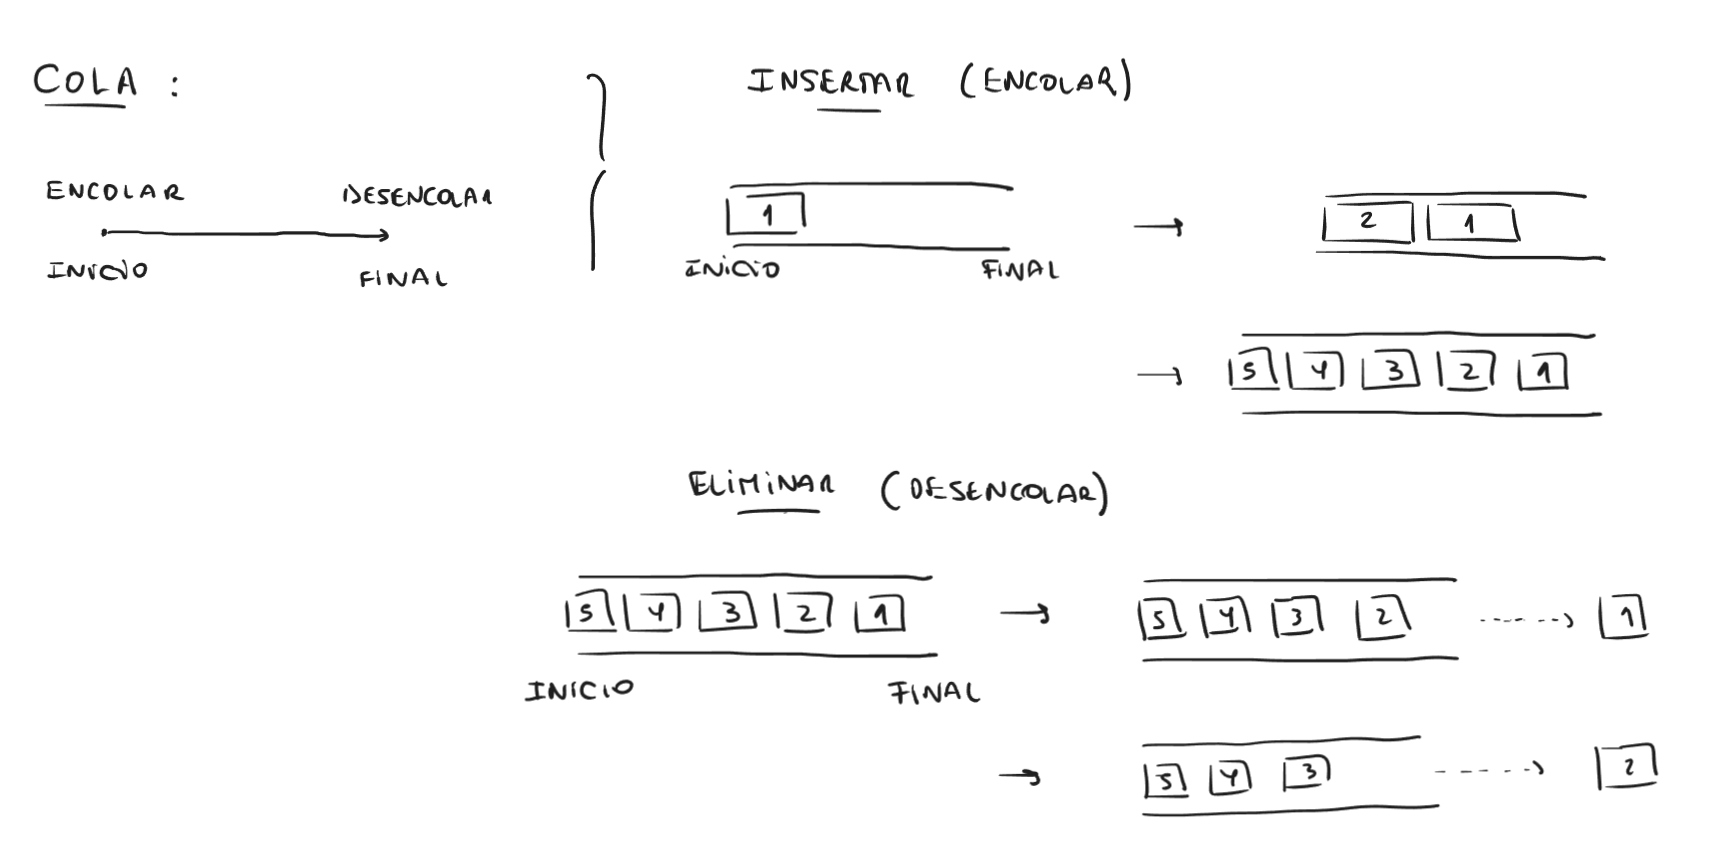 COLA :
ENCOLAR DESENCOLAR
INICIO FINAL
INSERTAR (ENCOLAR)
1
INICIO FINAL
2 1
5 4 3 2 1
ELIMINAR (DESENCOLAR)
5 4 3 2 1
INICIO FINAL
5 4 3 2 1
5 4 3 2